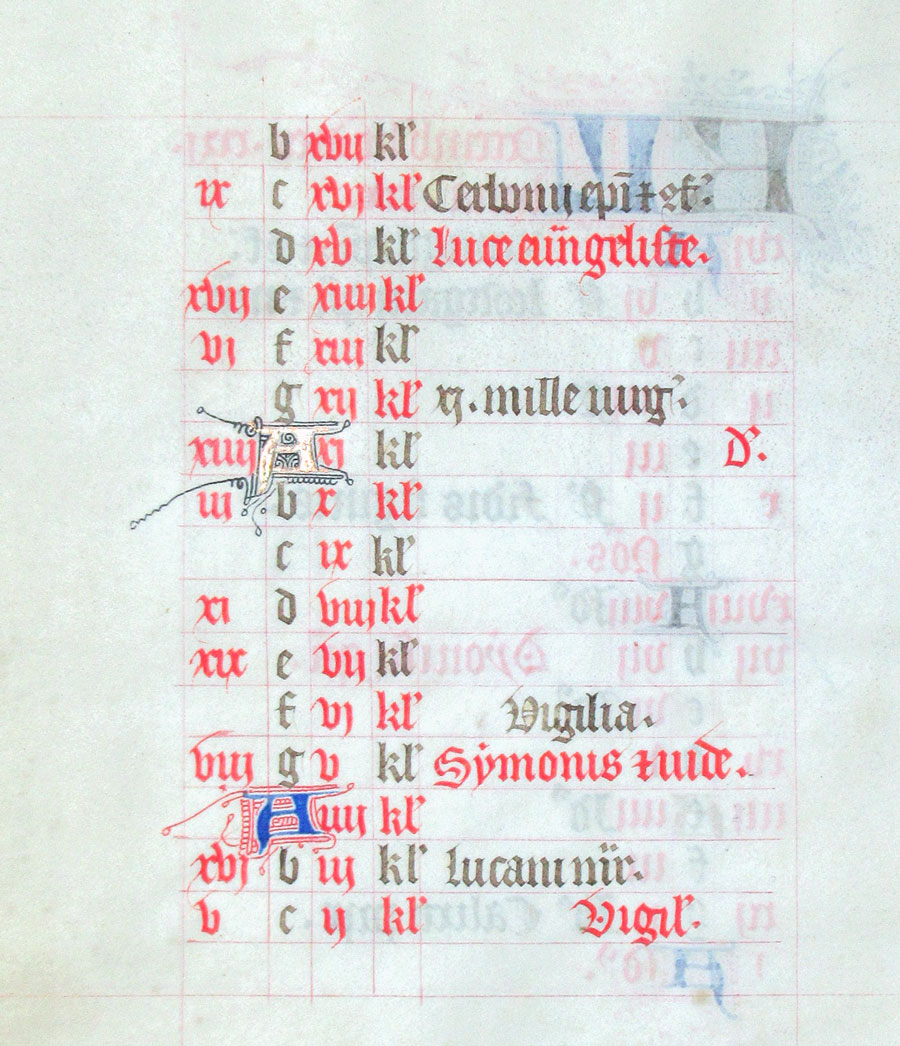 b xvij kl'
ix c xvj kl' Cerbonij ep̄i ⁊ 9f.
d xv kl' Luce eũngeliste.
xvij e xiiij kl'
vj f xiij kl'
g xij kl' xj. mille uirg'.
xiiij A xj kl' D'.
iij b x kl'
c ix kl'
xi d viij kl'
xix e vij kl'
f vj kl' Vigilia.
viij g v kl' Symonis ⁊ iude.
A iiij kl'
xvj b iij kl' Lucani m̃r.
v c ij kl' Vigil'.